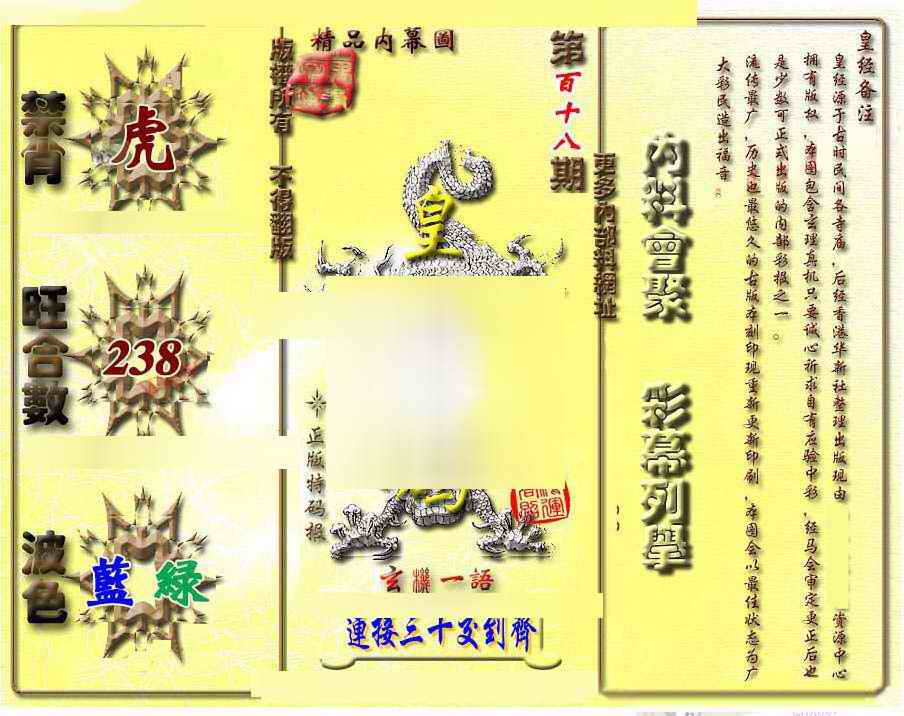 精品内幕圖
第百十八期
禁肖
虎
旺合數
238
波色
藍 綠
版權所有 不得翻版
皇
※正版特码报
玄機一語
連接三十叐到齊
更多內部料網址
內料會聚
彩幕列舉
皇经备注
皇经源于古时民间各寺庙，后经香港华新社整理出版现由
资源中心
拥有版权，本图包含玄理真机只要诚心祈求自有应验中彩，经马会审定更正后也
是少数可正式出版的内部彩报之一。
流传最广，历史也最悠久的古版本刻印现重新更新印刷，本图会以最佳状态为广
大彩民造出福音